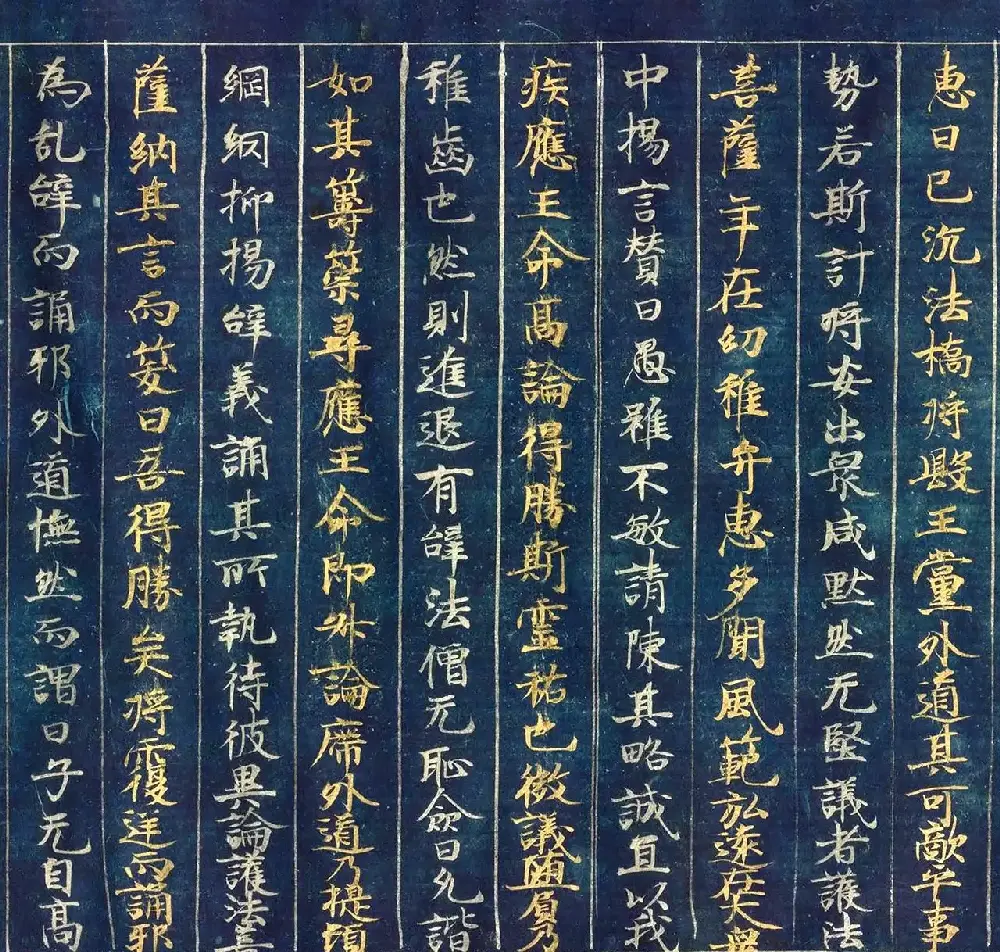 惠日已沉法橋将毀王黨外道其可敵乎事
勢若斯計将安出衆咸默然无竪議者護法
菩薩年在幼稚弁惠多聞風範弘遠在大衆
中揚言賛曰愚雖不敏請陳其略誠宜以我
疾應王命高論得勝斯霊祐也徴議墮負乃
稚齒也然則進退有辝法僧无恥僉曰允諧
如其籌策尋應王命即升論席外道乃提頓
綱網抑揚辝義誦其所執待彼異論護法菩
薩納其言而笑曰吾得勝矣将覆逆而誦邪
為乱辝而誦邪外道憮然而謂曰子无自高